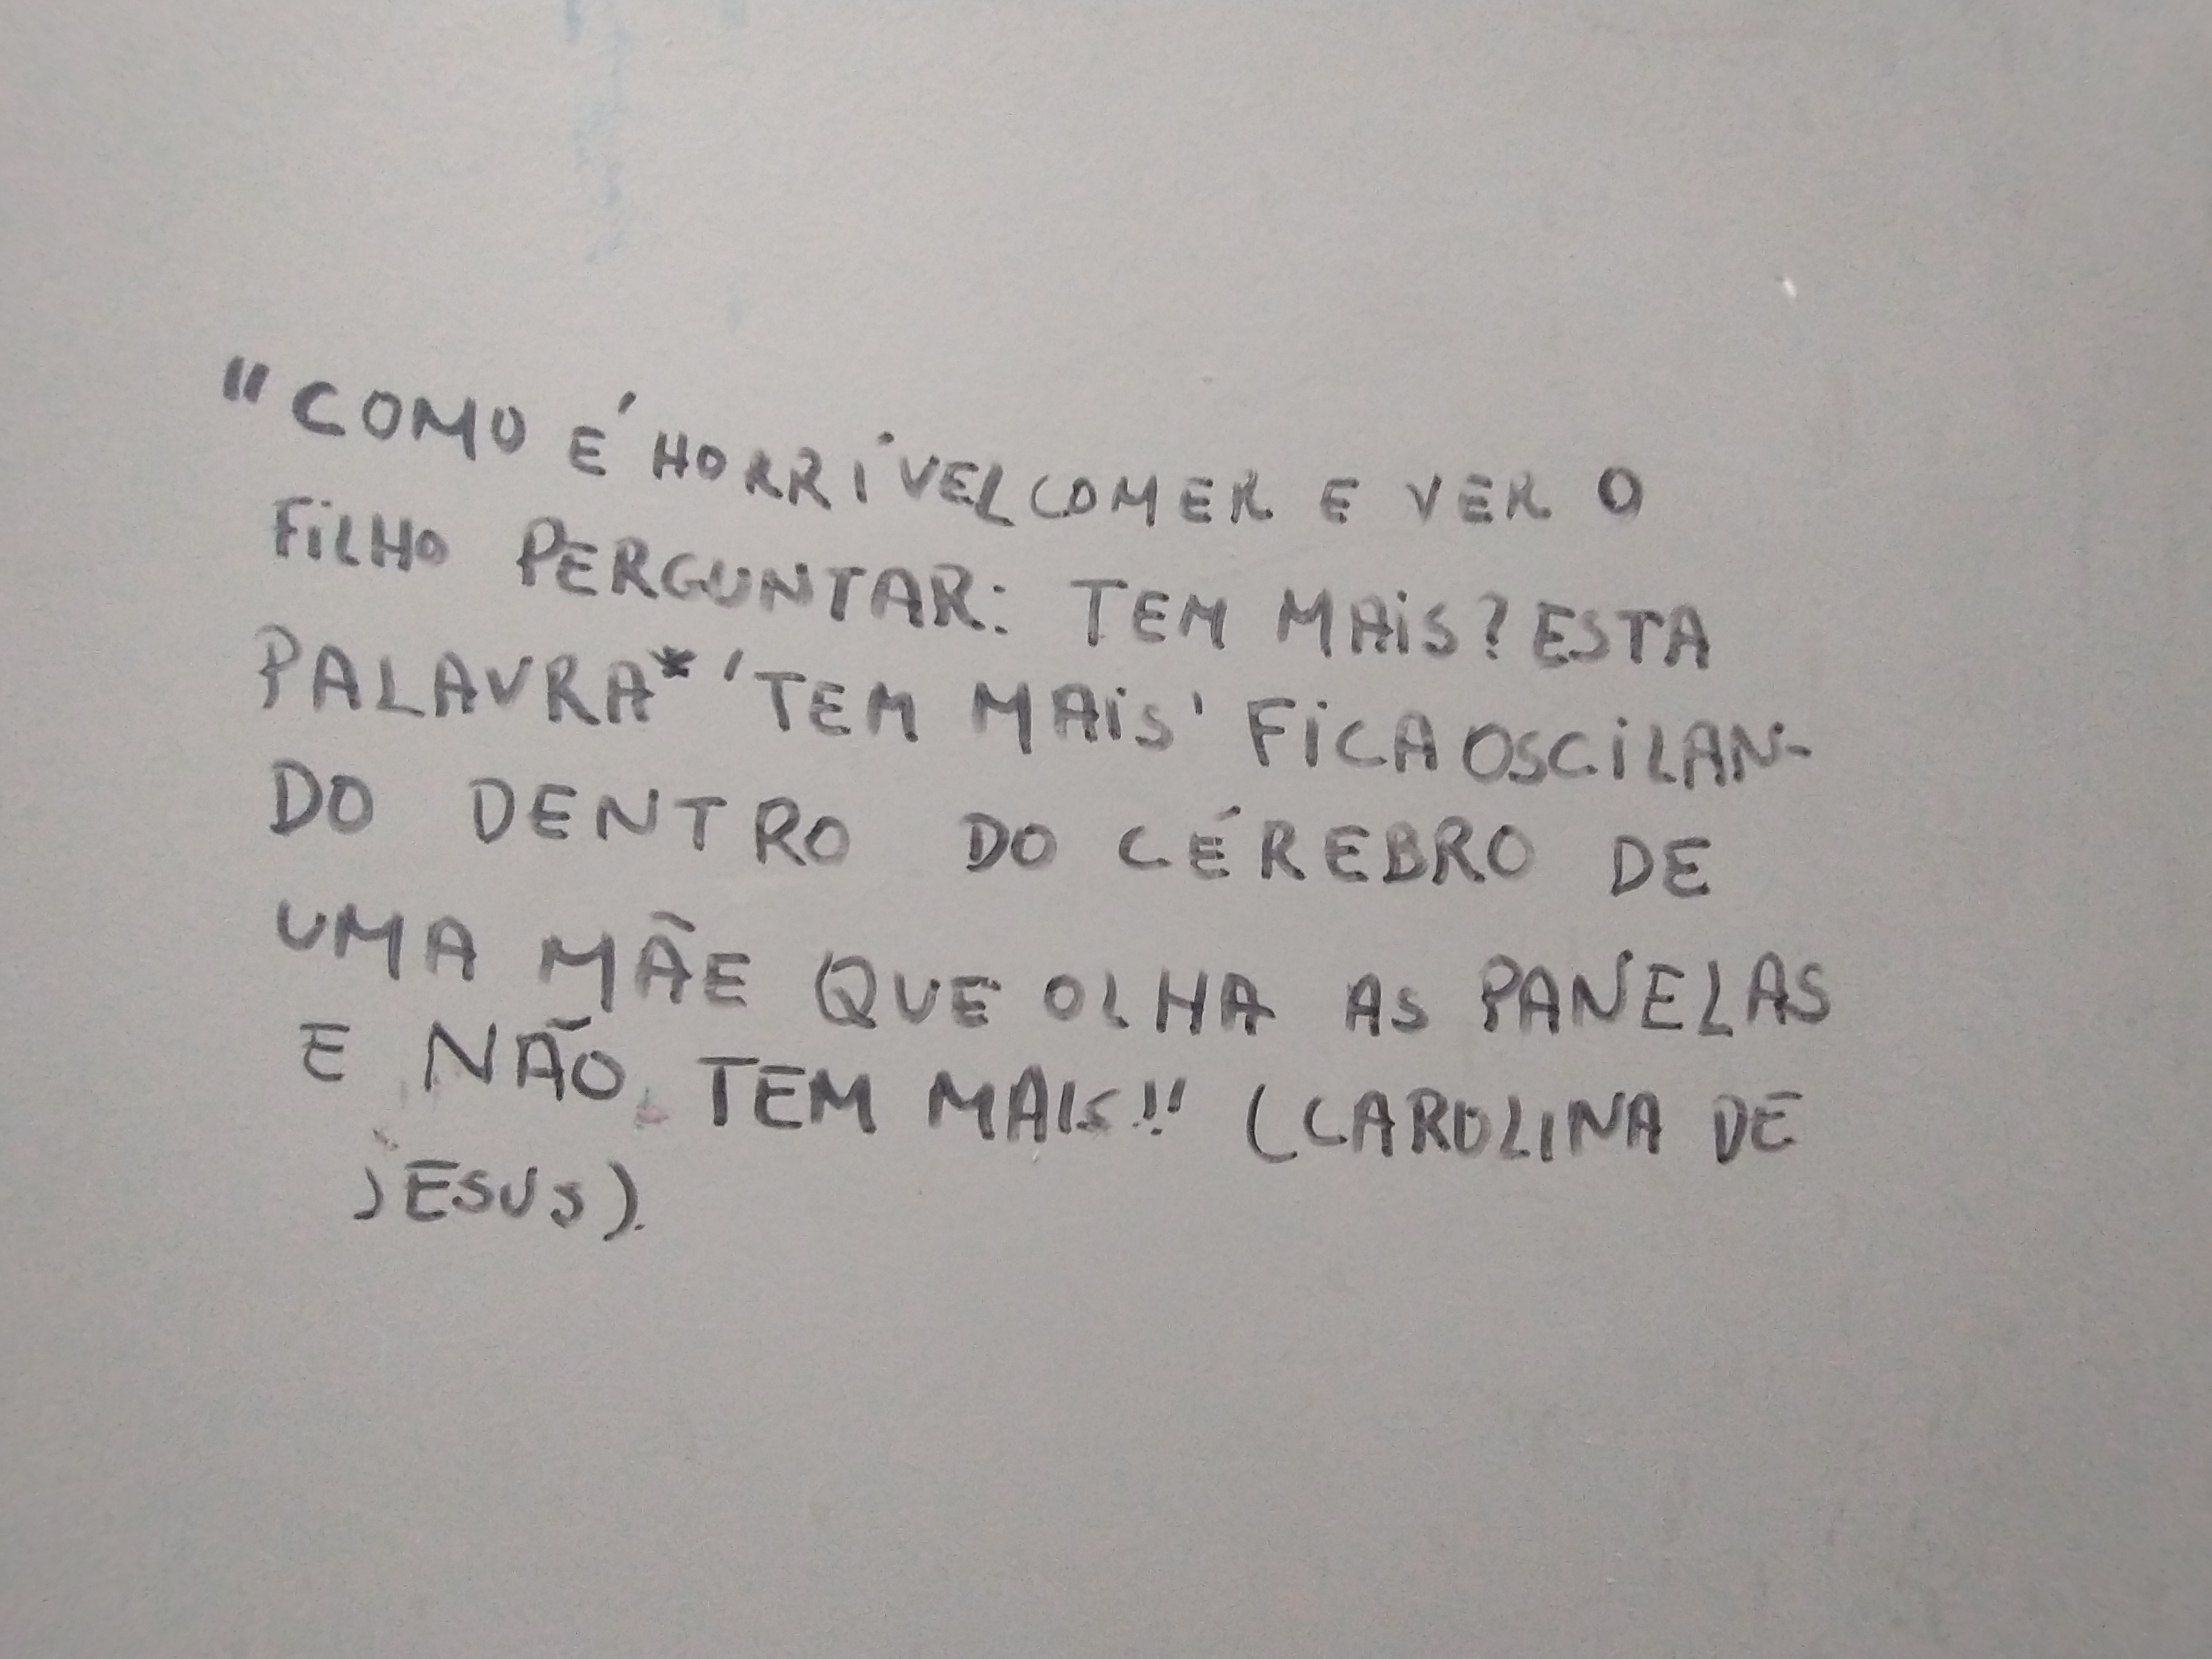 "COMO É HORRÍVEL COMER E VER O
FILHO PERGUNTAR: TEM MAIS? ESTA
PALAVRA* 'TEM MAIS' FICA OSCILAN-
DO DENTRO DO CÉREBRO DE
UMA MÃE QUE OLHA AS PANELAS
E NÃO TEM MAIS!" (CAROLINA DE
JESUS).